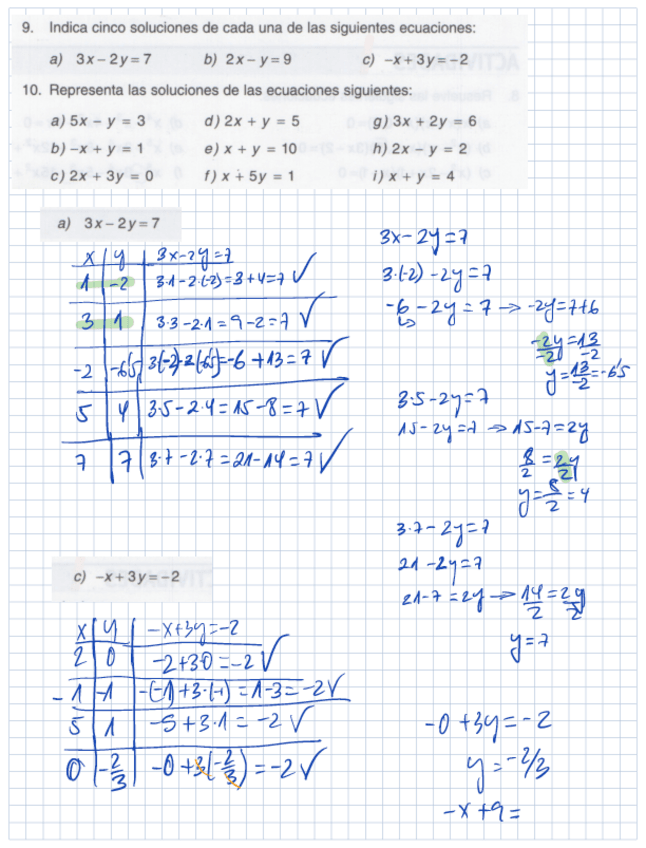 9. Indica cinco soluciones de cada una de las siguientes ecuaciones:
a) 3x − 2y = 7 b) 2x − y = 9 c) −x + 3y = −2
10. Representa las soluciones de las ecuaciones siguientes:
a) 5x − y = 3 d) 2x + y = 5 g) 3x + 2y = 6
b) −x + y = 1 e) x + y = 10 h) 2x − y = 2
c) 2x + 3y = 0 f) x + 5y = 1 i) x + y = 4
a) 3x − 2y = 7
x y 3x−2y=7
1 −2 3·1−2·(−2)=3+4=7 ✓
3 1 3·3−2·1=9−2=7 ✓
−2 −6'5 3(−2)−2(−6'5)=−6+13=7 ✓
5 4 3·5−2·4=15−8=7 ✓
7 7 3·7−2·7=21−14=7 ✓
3x−2y=7
3·(−2)−2y=7
−6−2y=7 → −2y=7+6
−2y/−2=13/−2
y=13/−2=−6'5
3·5−2y=7
15−2y=7 → 15−7=2y
8/2=2y/2
y=8/2=4
3·7−2y=7
21−2y=7
21−7=2y → 14/2=2y/2
y=7
c) −x + 3y = −2
x y −x+3y=−2
2 0 −2+3·0=−2 ✓
−1 −1 −(−1)+3·(−1)=1−3=−2 ✓
5 1 −5+3·1=−2 ✓
0 −2/3 −0+3(−2/3)=−2 ✓
−0+3y=−2
y=−2/3
−x+9=